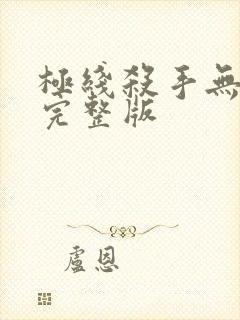 極綫殺手無
完整版
盧恩